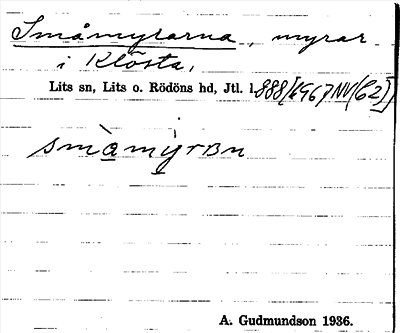 Småmyrarna, myrar
i Klösta,
Lits sn, Lits o. Rödöns hd, Jtl. l.
smàmýrʙn
A. Gudmundson 1936.